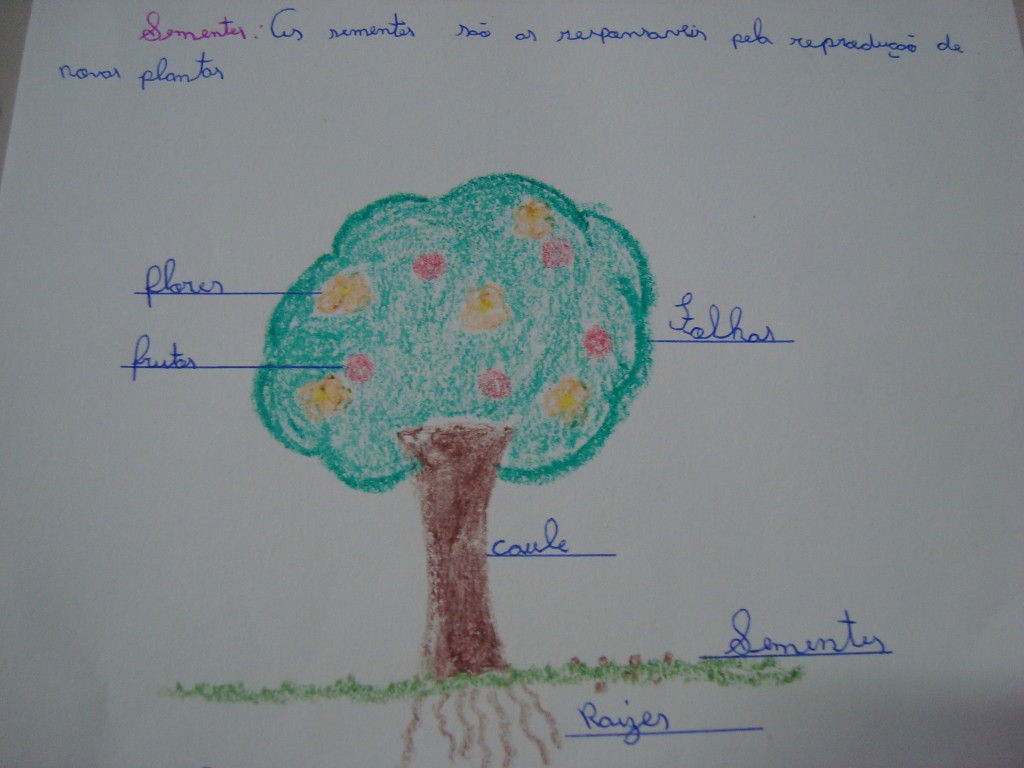 Sementes: As sementes são as responsaveis pela reprodução de
novas plantas
flores
Folhas
frutas
caule
Sementes
Raizes